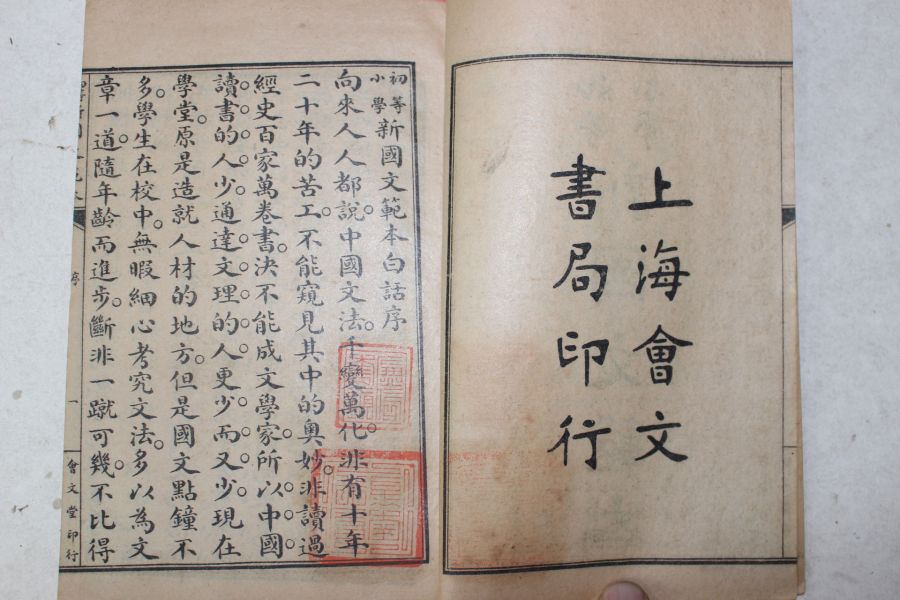 上海會文
書局印行
初等小學新國文範本白話序
向來人人都說中國文法。千變萬化。非有十年
二十年的苦工。不能窺見其中的奧妙。非讀過
經史百家萬卷書。決不能成文學家。所以中國
讀書的人少。通達文理的人更少而又少。現在
學堂。原是造就人材的地方。但是國文點鐘不
多。學生在校中。無暇細心考究文法。多以為文
章一道。隨年齡而進步。斷非一蹴可幾。不比得
序
一
會文堂印行